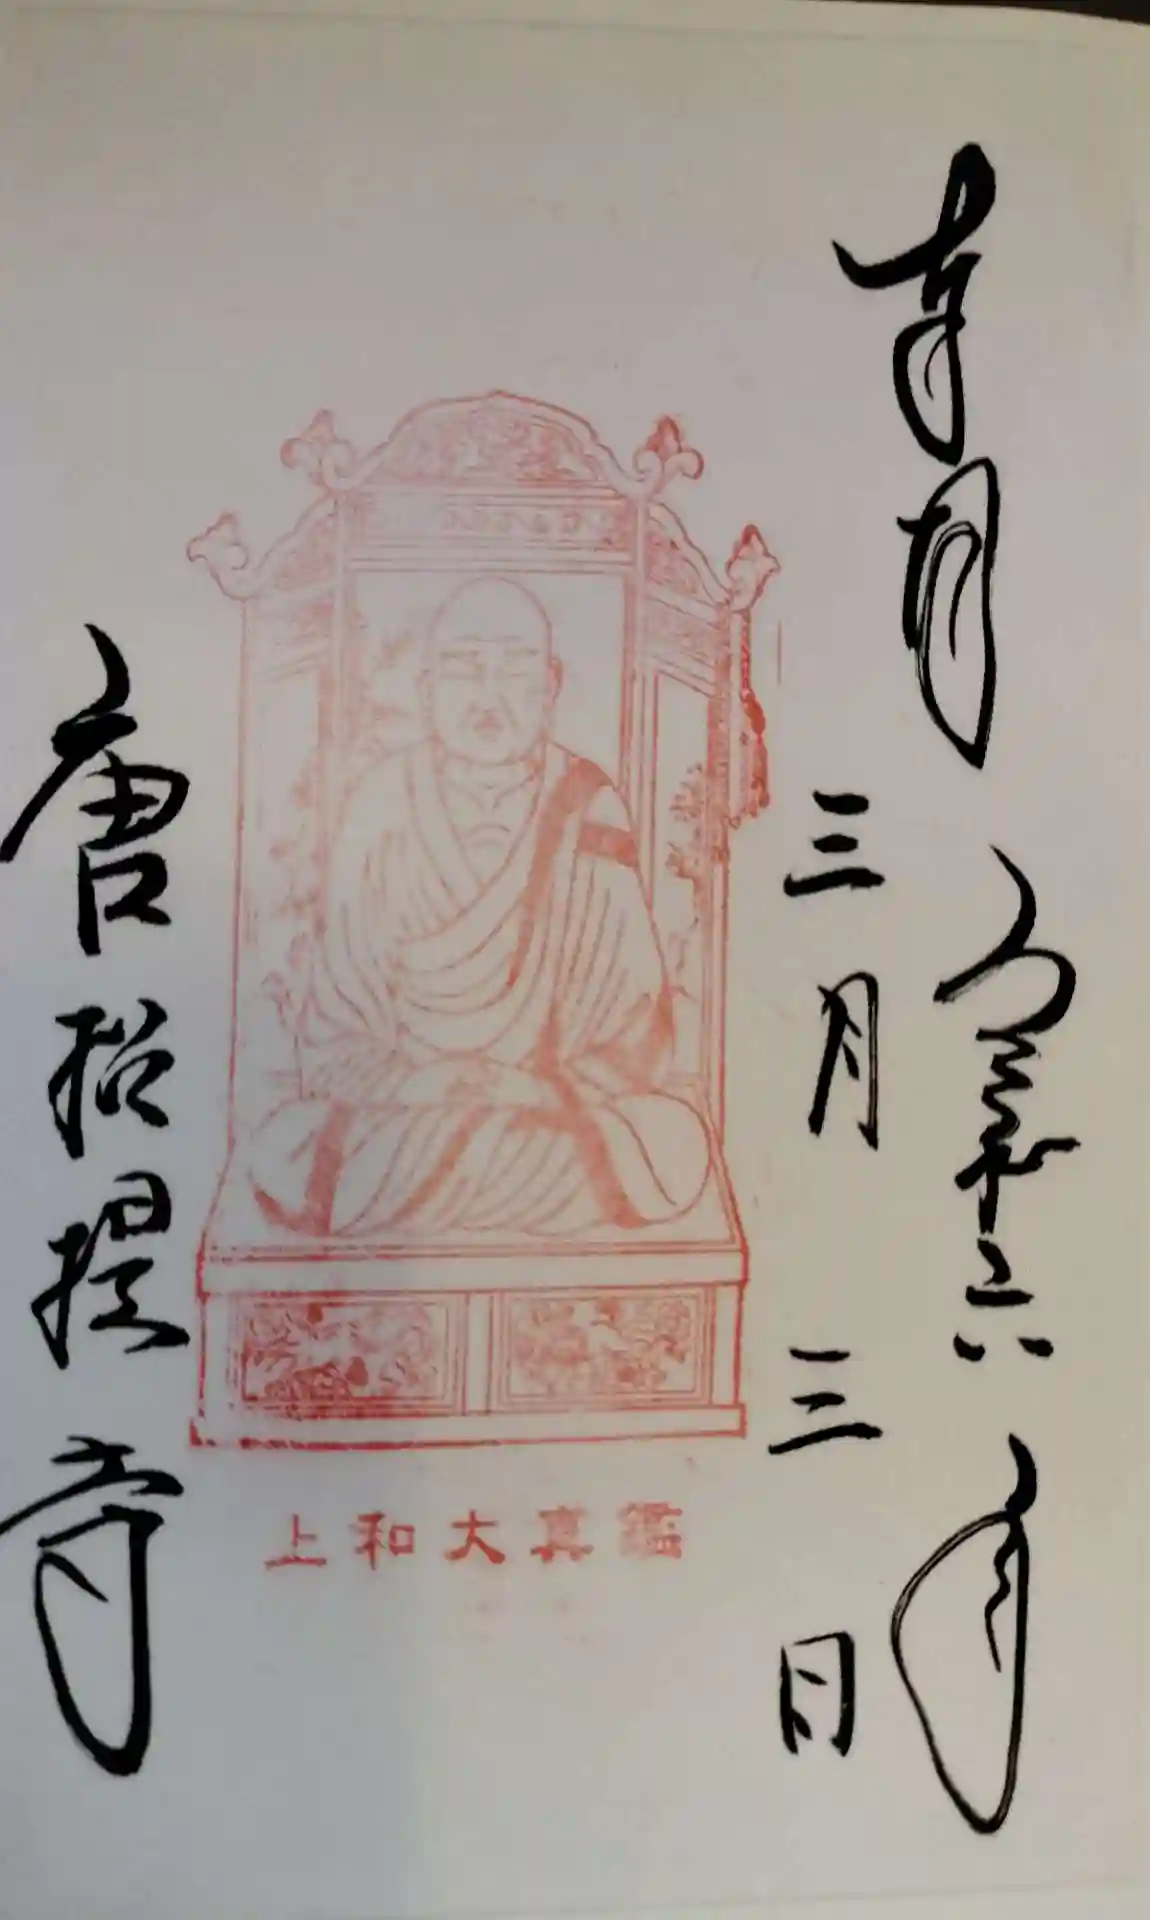 奉拝
令和六年
三月三日
唐招提寺
上和大真鑑